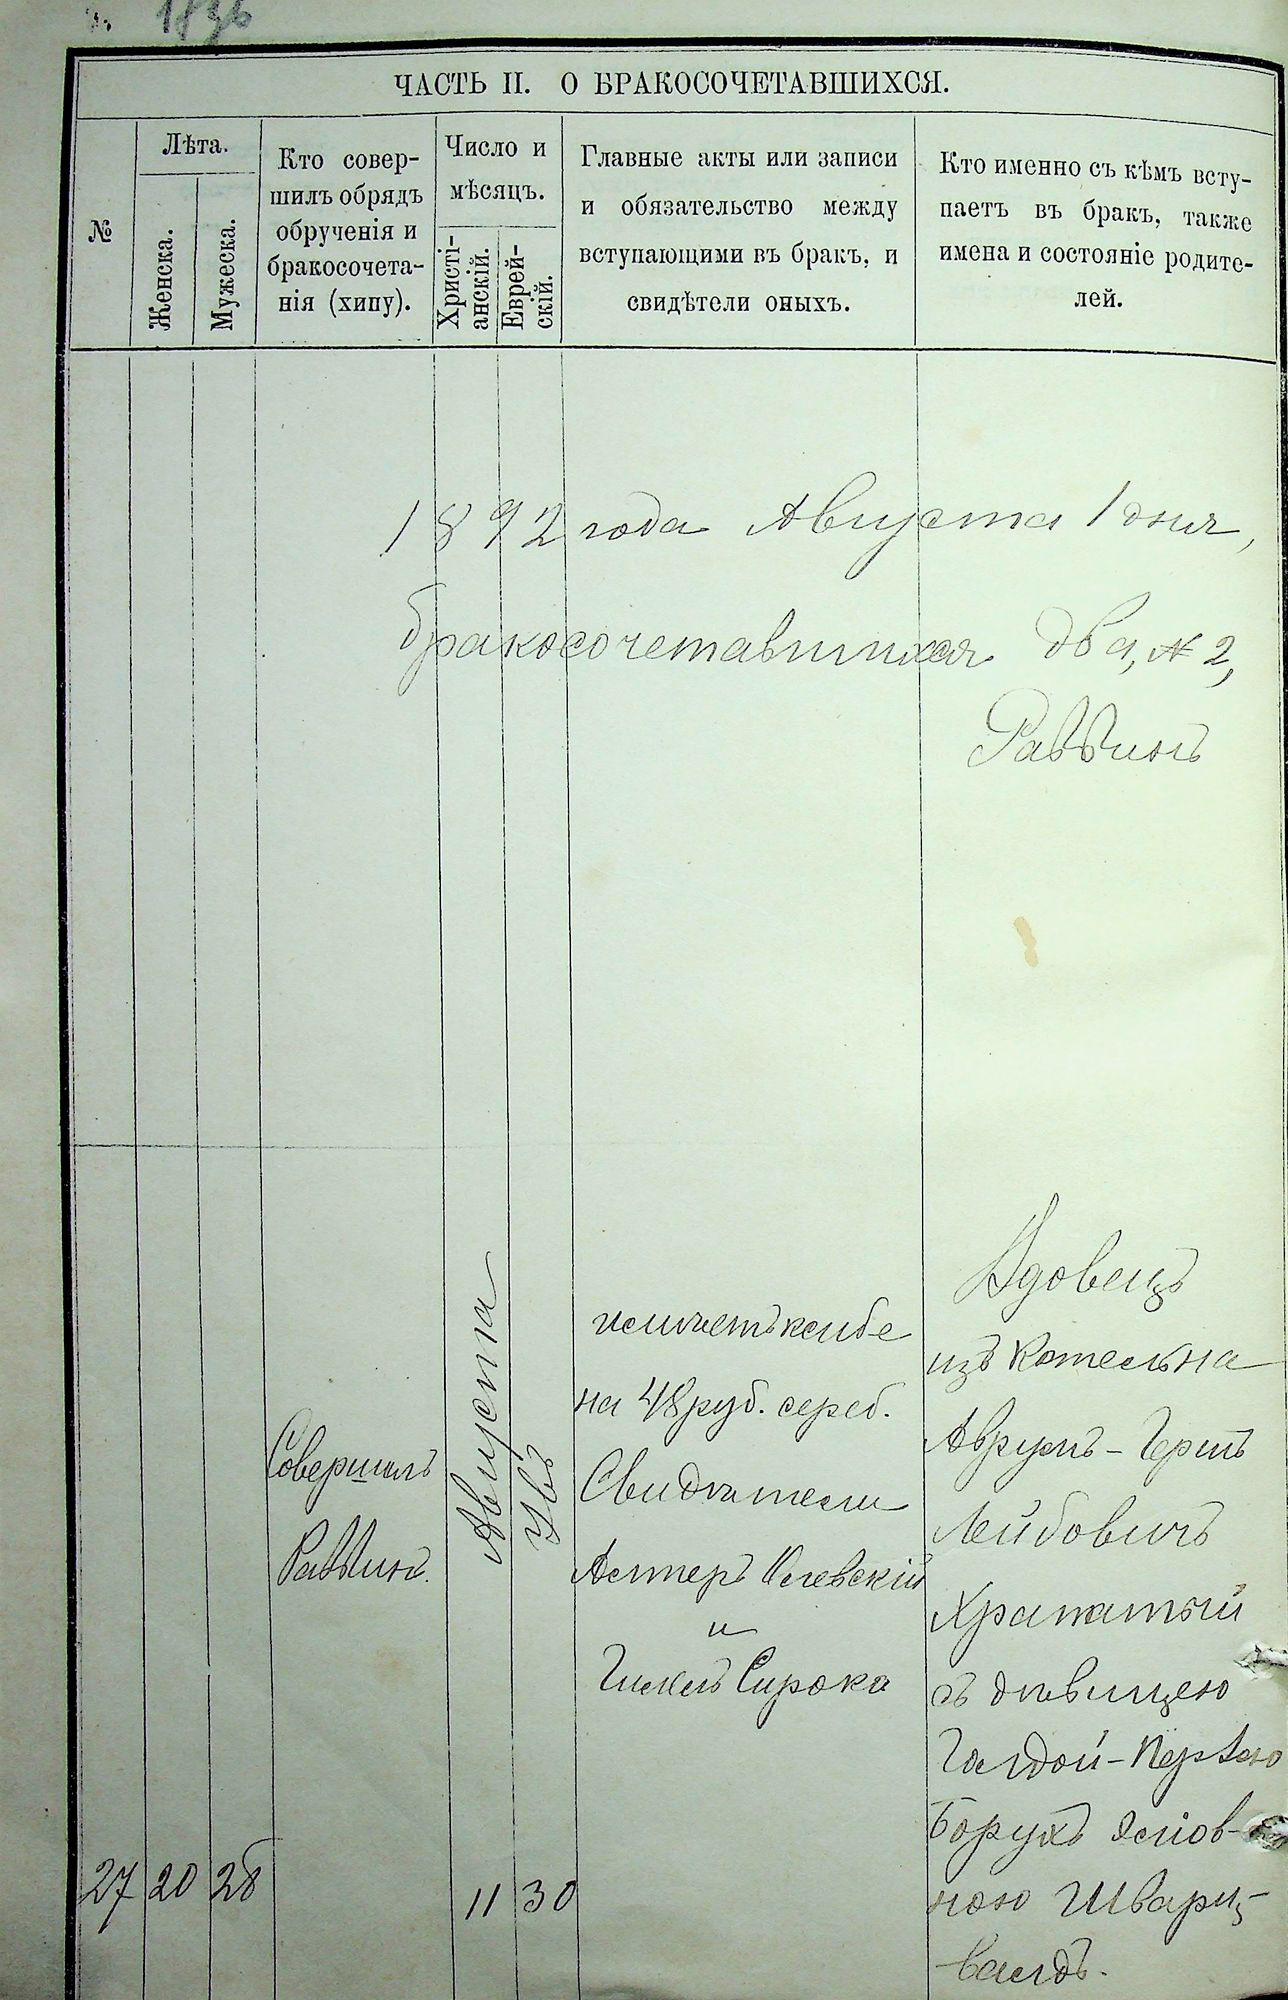 1896
ЧАСТЬ II. О БРАКОСОЧЕТАВШИХСЯ.
№
Лѣта.
Женска.
Мужеска.
Кто совер-
шилъ обрядъ
обрученія и
бракосочета-
нія (хипу).
Число и
мѣсяцъ.
Христі-
анскій.
Еврей-
скій.
Главные акты или записи
и обязательство между
вступающими въ бракъ, и
свидѣтели оныхъ.
Кто именно съ кѣмъ всту-
паетъ въ бракъ, также
имена и состояніе родите-
лей.
1892 года Августа 1 дня,
бракосочетавшихся два, № 2,
Раввинъ
27 20 28
Совершилъ
Раввинъ.
Августа
11
Увъ
30
на 48 руб. сереб.
Свидѣтели
Астеръ
и
Сирока
Вдовецъ
изъ Котельна
Аврумъ-Гершъ
Лейбовичъ
Храпатый
съ дѣвицею
Голдой-Перлею
Борухъ
ною Шварц-
валдъ.